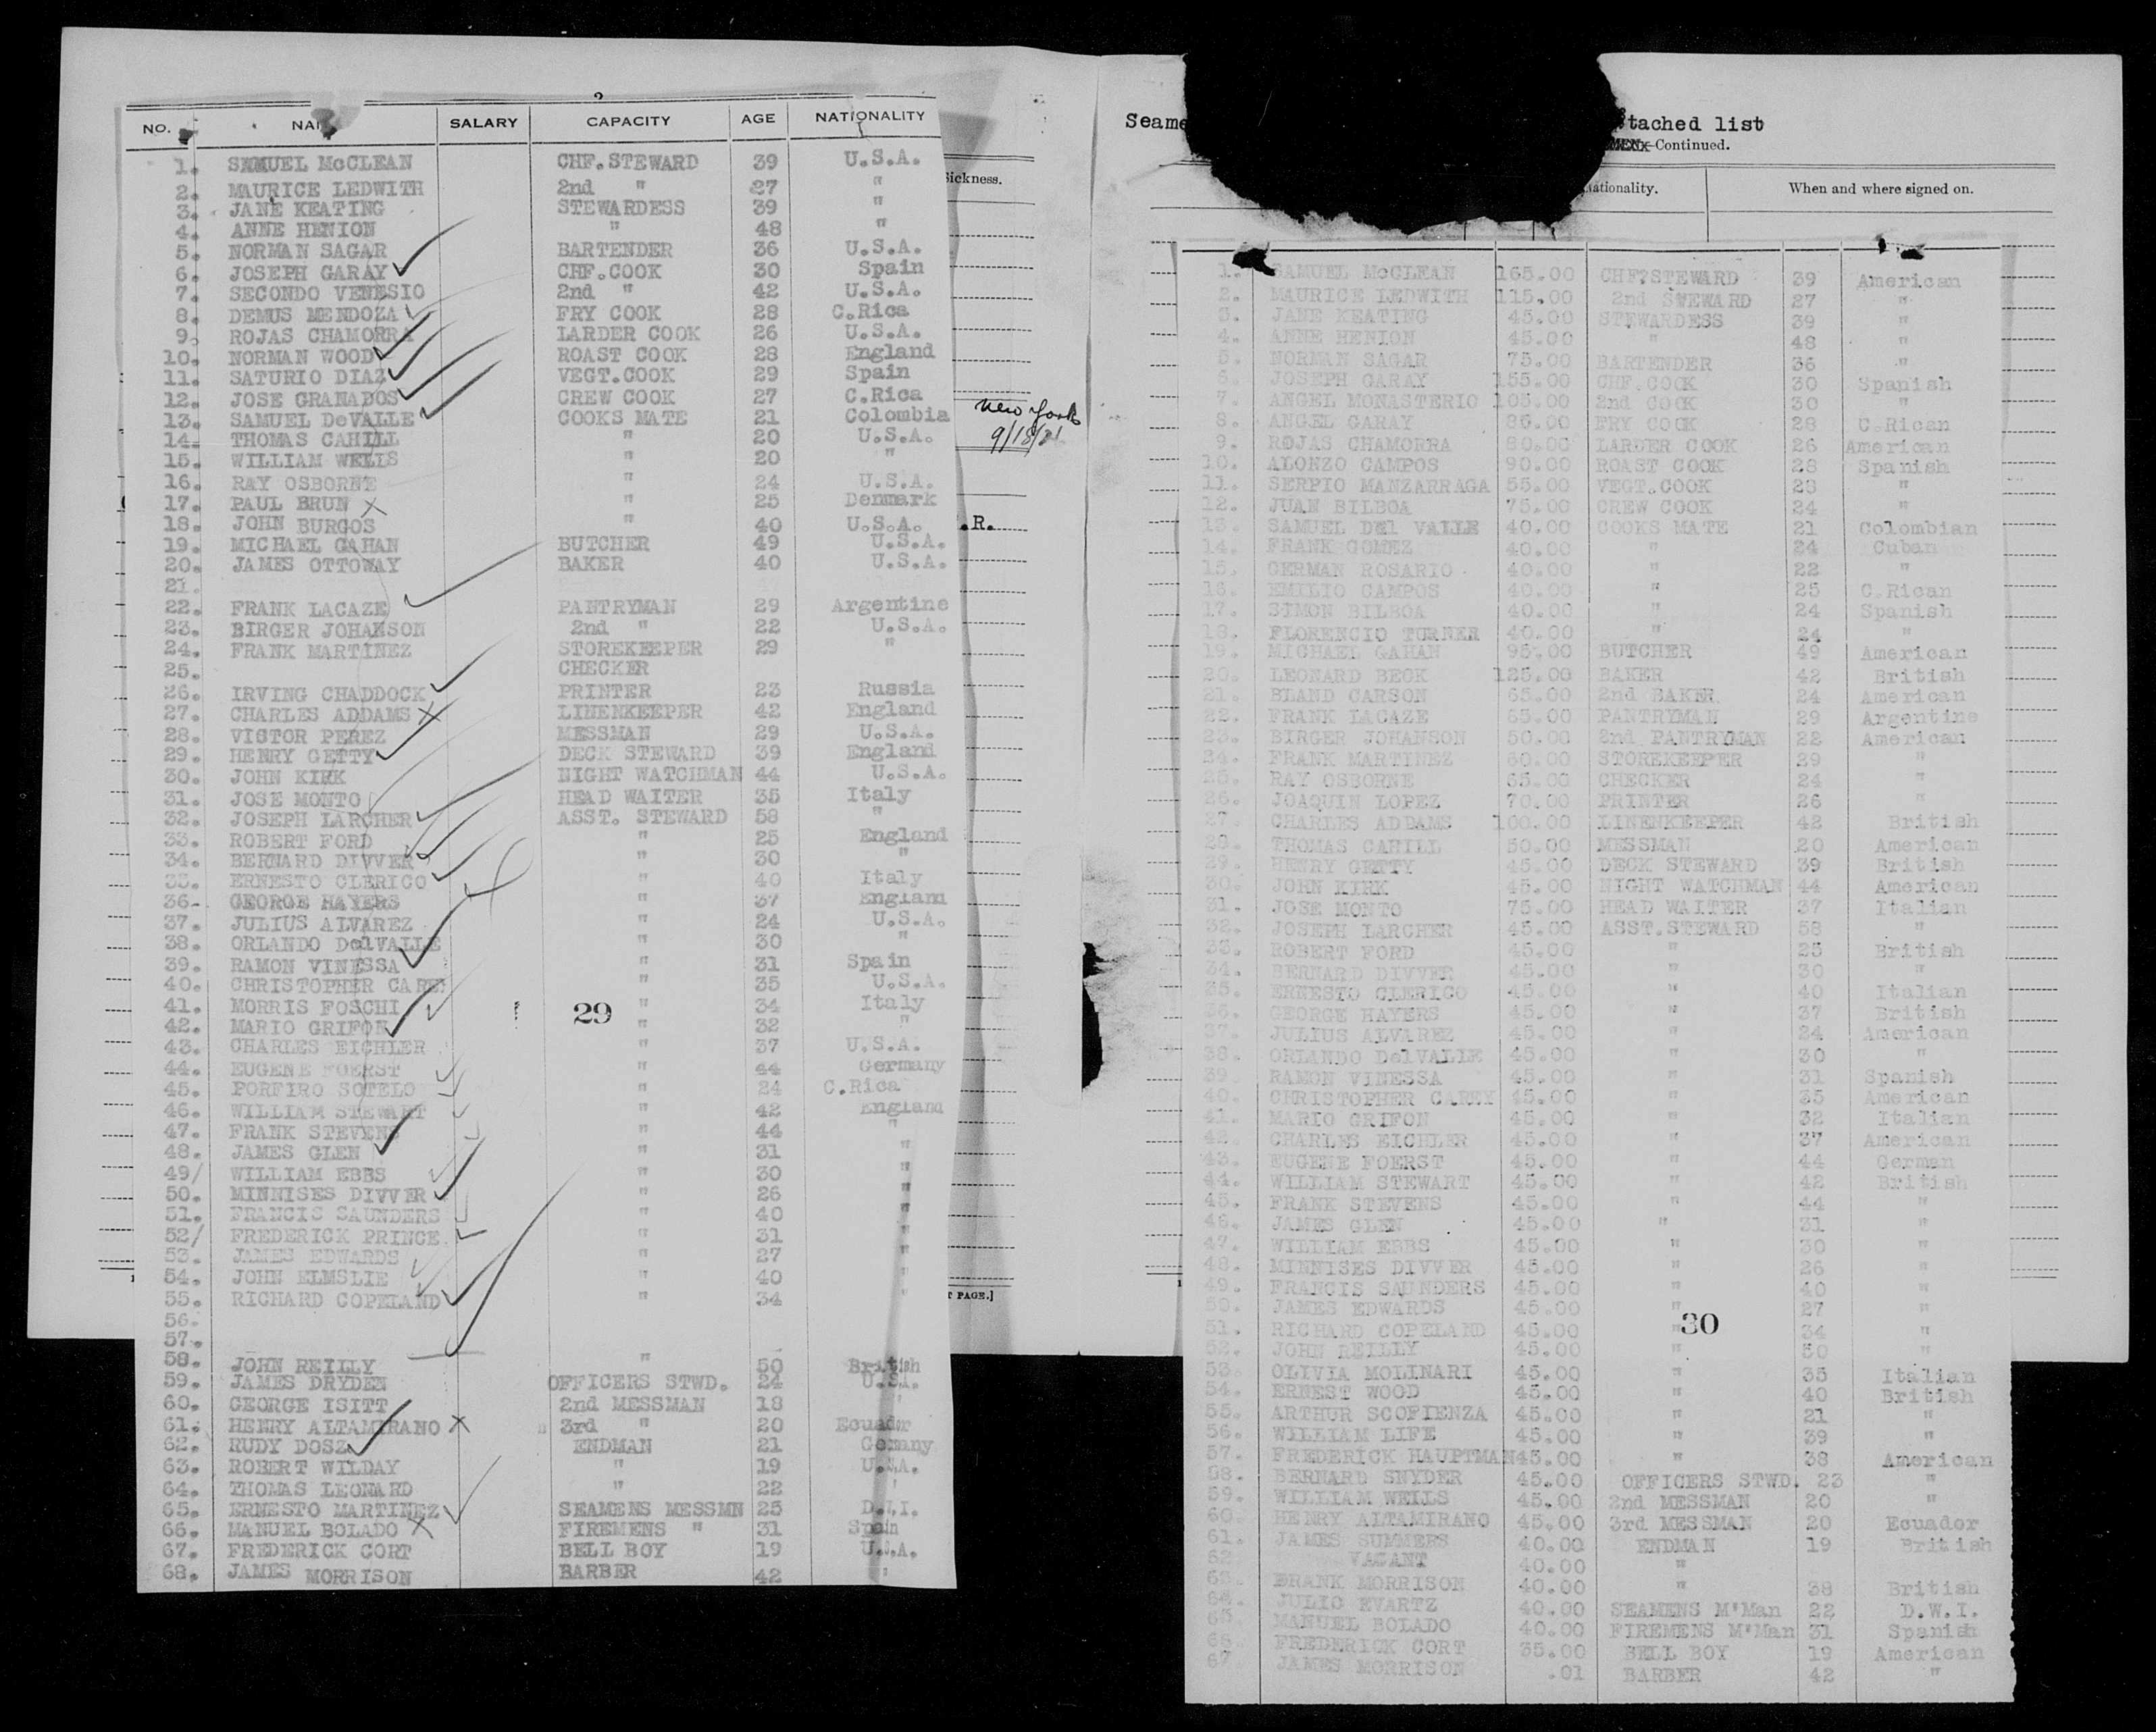 2
NO. NAM SALARY CAPACITY AGE NATIONALITY
1. SAMUEL McCLEAN CHF.STEWARD 39 U.S.A.
2. MAURICE LEDWITH 2nd " 27 "
3. JANE KEATING STEWARDESS 39 "
4. ANNE HENION " 48 "
5. NORMAN SAGAR BARTENDER 36 U.S.A.
6. JOSEPH GARAY CHF.COOK 30 Spain
7. SECONDO VENESIO 2nd " 42 U.S.A.
8. DEMUS MENDOZA FRY COOK 28 C.Rica
9. ROJAS CHAMORRA LARDER COOK 26 U.S.A.
10. NORMAN WOOD ROAST COOK 28 England
11. SATURIO DIAZ VEGT.COOK 29 Spain
12. JOSE GRANADOS CREW COOK 27 C.Rica
13. SAMUEL DeVALLE COOKS MATE 21 Colombia
14. THOMAS CAHILL " 20 U.S.A.
15. WILLIAM WELLS " 20 "
16. RAY OSBORNE " 24 U.S.A.
17. PAUL BRUN X " 25 Denmark
18. JOHN BURGOS " 40 U.S.A.
19. MICHAEL GAHAN BUTCHER 49 U.S.A.
20. JAMES OTTOWAY BAKER 40 U.S.A.
21.
22. FRANK LACAZE PANTRYMAN 29 Argentine
23. BIRGER JOHANSON 2nd " 22 U.S.A.
24. FRANK MARTINEZ STOREKEEPER 29 "
25. CHECKER
26. IRVING CHADDOCK PRINTER 23 Russia
27. CHARLES ADDAMS X LINENKEEPER 42 England
28. VICTOR PEREZ MESSMAN 29 U.S.A.
29. HENRY GETTY DECK STEWARD 39 England
30. JOHN KIRK NIGHT WATCHMAN 44 U.S.A.
31. JOSE MONTO HEAD WAITER 35 Italy
32. JOSEPH LARCHER ASST. STEWARD 58 "
33. ROBERT FORD " 25 England
34. BERNARD DIVVER " 30 "
35. ERNESTO CLERICO " 40 Italy
36. GEORGE HAYERS " 37 England
37. JULIUS ALVAREZ " 24 U.S.A.
38. ORLANDO DelVALLE " 30 "
39. RAMON VINESSA " 31 Spain
40. CHRISTOPHER CAREY " 35 U.S.A.
41. MORRIS FOSCHI " 34 Italy
29
42. MARIO GRIFON " 32 "
43. CHARLES EICHLER " 37 U.S.A.
44. EUGENE FOERST " 44 Germany
45. PORFIRO SOTELO " 24 C.Rica
46. WILLIAM STEWART " 42 England
47. FRANK STEVENS " 44 "
48. JAMES GLEN " 31 "
49/ WILLIAM EBBS " 30 "
50. MINNISES DIVVER " 26 "
51. FRANCIS SAUNDERS " 40 "
52/ FREDERICK PRINCE. " 31 "
53. JAMES EDWARDS " 27 "
54. JOHN ELMSLIE " 40 "
55. RICHARD COPELAND " 34 "
56.
57.
58. JOHN REILLY " 50 British
59. JAMES DRYDEN OFFICERS STWD. 24 U.S.A.
60. GEORGE ISITT 2nd MESSMAN 18 "
61. HENRY ALTAMIRANO X 3rd " 20 Ecuador
62. RUDY DOSZ ENDMAN 21 Gemany
63. ROBERT WILDAY " 19 U.S.A.
64. THOMAS LEONARD " 22 "
65. ERNESTO MARTINEZ SEAMENS MESSMN 25 D.W.I.
66. MANUEL BOLADO X FIREMENS " 31 Spain
67. FREDERICK CORT BELL BOY 19 U.S.A.
68. JAMES MORRISON BARBER 42 "
Sickness.
New York
9/18/21
.R.
T PAGE.]
Seame tached list
MENX-Continued.
ationality. When and where signed on.
1. SAMUEL McCLEAN 165.00 CHF.STEWARD 39 American
2. MAURICE LEDWITH 115.00 2nd STEWARD 27 "
3. JANE KEATING 45.00 STEWARDESS 39 "
4. ANNE HENION 45.00 " 48 "
5. NORMAN SAGAR 75.00 BARTENDER 36 "
6. JOSEPH GARAY 155.00 CHF.COOK 30 Spanish
7. ANGEL MONASTERIO 105.00 2nd COOK 30 "
8. ANGEL GARAY 86.00 FRY COOK 28 C.Rican
9. ROJAS CHAMORRA 80.00 LARDER COOK 26 American
10. ALONZO CAMPOS 90.00 ROAST COOK 28 Spanish
11. SERPIO MANZARRAGA 55.00 VEGT.COOK 23 "
12. JUAN BILBOA 75.00 CREW COOK 24 "
13. SAMUEL DEl VALLE 40.00 COOKS MATE 21 Colombian
14. FRANK GOMEZ 40.00 " 24 Cuban
15. GERMAN ROSARIO 40.00 " 22 "
16. EMILIO CAMPOS 40.00 " 25 C.Rican
17. SIMON BILBOA 40.00 " 24 Spanish
18. FLORENCIO TURNER 40.00 " 24 "
19. MICHAEL GAHAN 95.00 BUTCHER 49 American
20. LEONARD BECK 125.00 BAKER 42 British
21. BLAND CARSON 65.00 2nd BAKER 24 American
22. FRANK LACAZE 65.00 PANTRYMAN 29 Argentine
23. BIRGER JOHANSON 50.00 2nd PANTRYMAN 22 American
24. FRANK MARTINEZ 60.00 STOREKEEPER 29 "
25. RAY OSBORNE 65.00 CHECKER 24 "
26. JOAQUIN LOPEZ 70.00 PRINTER 26 "
27. CHARLES ADDAMS 100.00 LINENKEEPER 42 British
28. THOMAS CAHILL 50.00 MESSMAN 20 American
29. HENRY GETTY 45.00 DECK STEWARD 39 British
30. JOHN KIRK 45.00 NIGHT WATCHMAN 44 American
31. JOSE MONTO 75.00 HEAD WAITER 37 Italian
32. JOSEPH LARCHER 45.00 ASST.STEWARD 58 "
33. ROBERT FORD 45.00 " 25 British
34. BERNARD DIVVER 45.00 " 30 "
35. ERNESTO CLERICO 45.00 " 40 Italian
36. GEORGE HAYERS 45.00 " 37 British
37. JULIUS ALVAREZ 45.00 " 24 American
38. ORLANDO DelVALLE 45.00 " 30 "
39. RAMON VINESSA 45.00 " 31 Spanish
40. CHRISTOPHER CAREY 45.00 " 35 American
41. MARIO GRIFON 45.00 " 32 Italian
42. CHARLES EICHLER 45.00 " 37 American
43. EUGENE FOERST 45.00 " 44 German
44. WILLIAM STEWART 45.00 " 42 British
45. FRANK STEVENS 45.00 " 44 "
46. JAMES GLEN 45.00 " 31 "
47. WILLIAM EBBS 45.00 " 30 "
48. MINNISES DIVVER 45.00 " 26 "
49. FRANCIS SAUNDERS 45.00 " 40 "
50. JAMES EDWARDS 45.00 " 27 "
30
51. RICHARD COPELAND 45.00 " 34 "
52. JOHN REILLY 45.00 50 "
53. OLIVIA MOLINARI 45.00 " 35 Italian
54. ERNEST WOOD 45.00 " 40 British
55. ARTHUR SCOFIENZA 45.00 " 21 "
56. WILLIAM LIFE 45.00 " 39 "
57. FREDERICK HAUPTMAN45.00 " 38 American
58. BERNARD SNYDER 45.00 OFFICERS STWD. 23 "
59. WILLIAM WELLS 45.00 2nd MESSMAN 20 "
60. HENRY ALTAMIRANO 45.00 3rd MESSMAN 20 Ecuador
61. JAMES SUMMERS 40.00 ENDMAN 19 British
62. VACANT 40.00 "
63. FRANK MORRISON 40.00 " 38 British
64. JULIO EVARTZ 40.00 SEAMENS M'Man 22 D.W.I.
65. MANUEL BOLADO 40.00 FIREMENS M'Man 31 Spanish
65 FREDERICK CORT 35.00 BELL BOY 19 American
67 JAMES MORRISON .01 BARBER 42 "